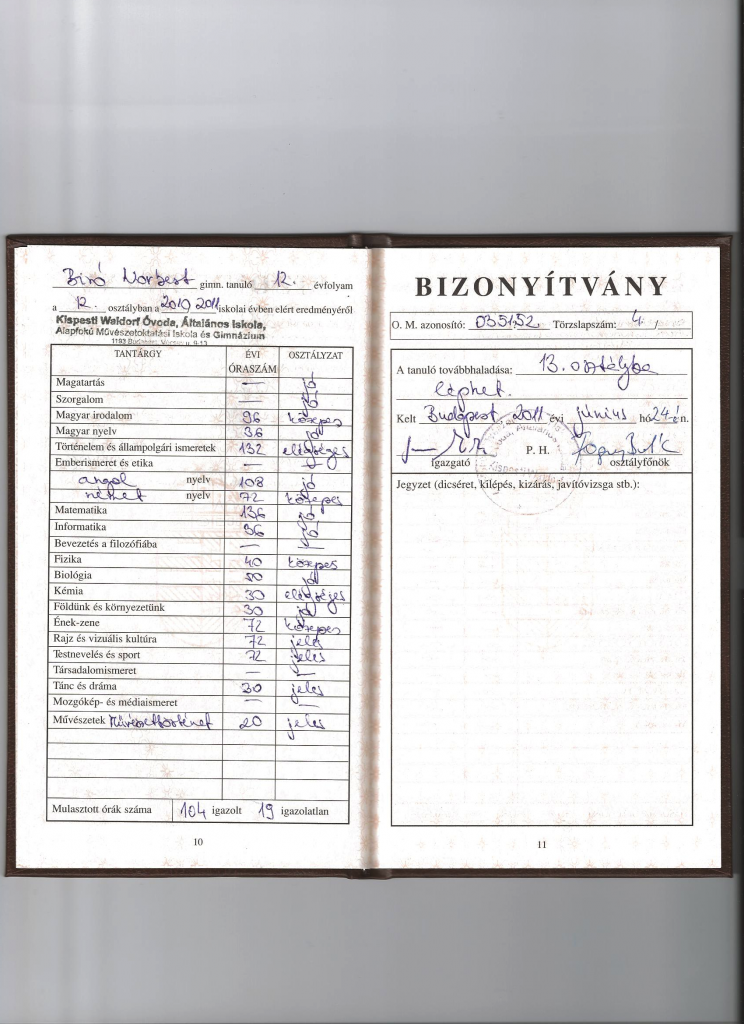 Biró Norbert gimn. tanuló 12. évfolyam
a 12. osztályban a 2010 2011 iskolai évben elért eredményéről
Kispesti Waldorf Óvoda, Általános Iskola,
Alapfokú Művészetoktatási Iskola és Gimnázium
TANTÁRGY ÉVI ÓRASZÁM OSZTÁLYZAT
Magatartás — jó
Szorgalom — jó
Magyar irodalom 96 közepes
Magyar nyelv 36 jó
Történelem és állampolgári ismeretek 132 elégséges
Emberismeret és etika — —
angol nyelv 108 jó
német nyelv 72 közepes
Matematika 136 jó
Informatika 36 jó
Bevezetés a filozófiába — —
Fizika 40 közepes
Biológia 50 jó
Kémia 30 elégséges
Földünk és környezetünk 30 jó
Ének-zene 72 közepes
Rajz és vizuális kultúra 72 jeles
Testnevelés és sport 72 jeles
Társadalomismeret — —
Tánc és dráma 30 jeles
Mozgókép- és médiaismeret — —
Művészetek Művészettörténet 20 jeles
Mulasztott órák száma 104 igazolt 19 igazolatlan
10
BIZONYÍTVÁNY
O. M. azonosító: 035152 Törzslapszám: 4 /
A tanuló továbbhaladása: 13. osztályba
léphet.
Kelt Budapest, 2011 évi június hó 24-én.
P. H.
igazgató osztályfőnök
Jegyzet (dicséret, kilépés, kizárás, javítóvizsga stb.):
11